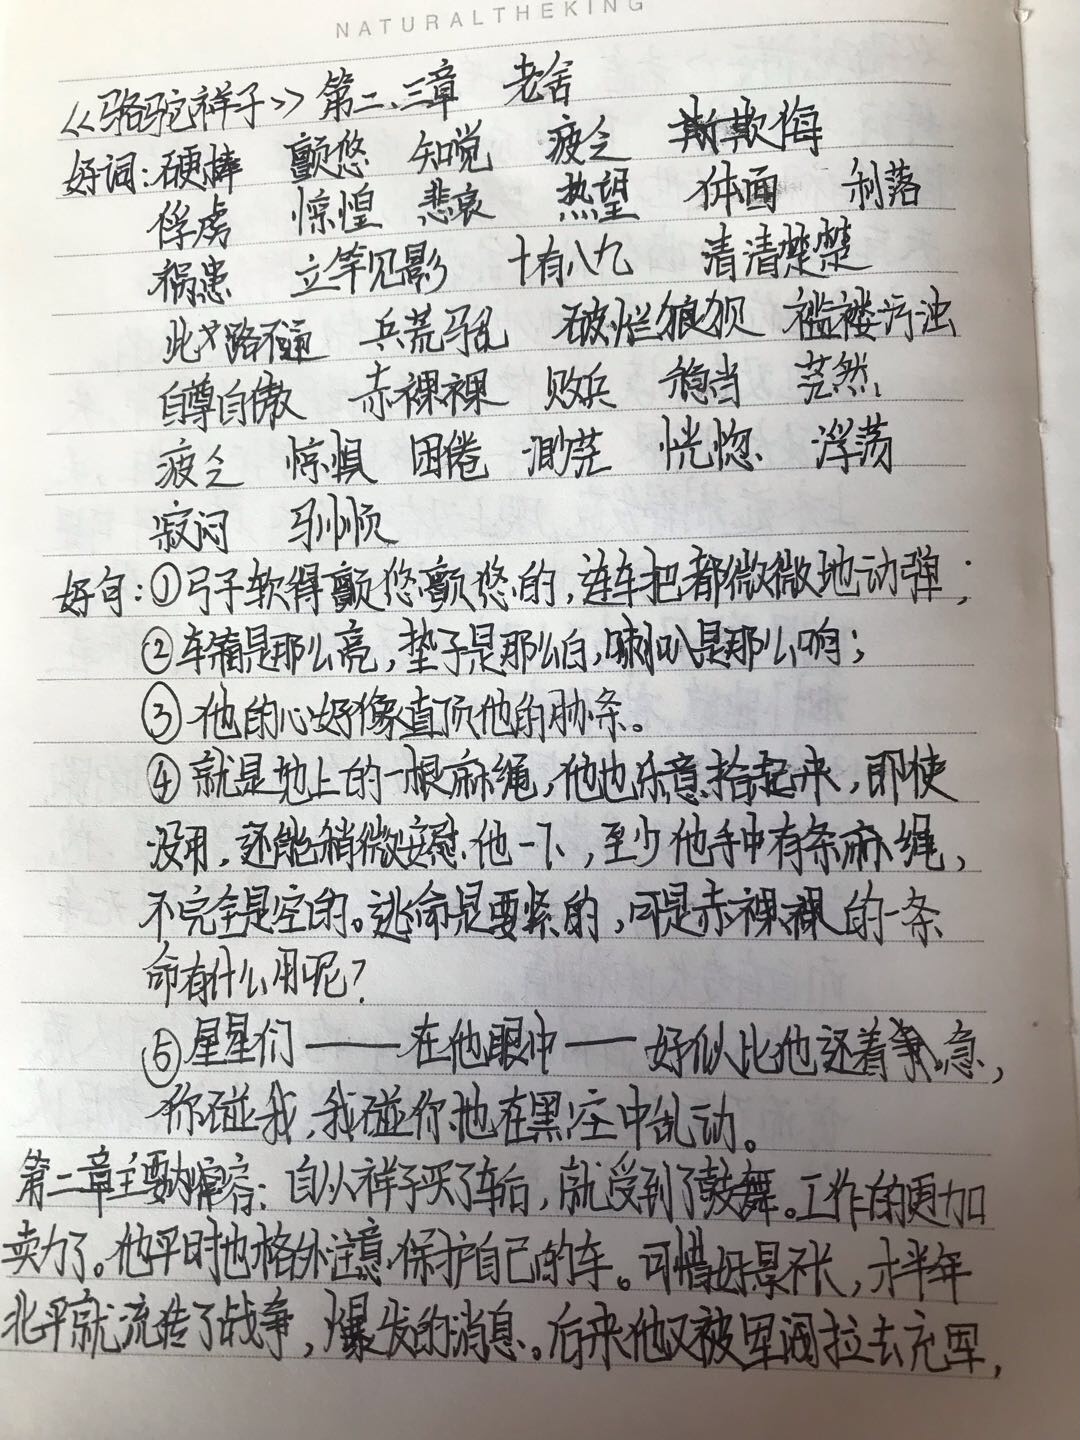 NATURALTHEKING
《骆驼祥子》第二、三章 老舍
好词：硬棒 颤悠 知觉 疲乏 欺侮
俘虏 惊惶 悲哀 热望 体面 利落
祸患 立竿见影 十有八九 清清楚楚
此路不通 兵荒马乱 破烂狼狈 褴褛污浊
自尊自傲 赤裸裸 败兵 稳当 茫然
疲乏 惊惧 困倦 渺茫 恍惚 浮荡
寂闷 驯顺
好句：①弓子软得颤悠颤悠的，连车把都微微地动弹；
②车箱是那么亮，垫子是那么白，喇叭是那么响；
③他的心好像直顶他的肋条。
④就是地上的一根麻绳，他也乐意拾起来，即使
没用，还能稍微安慰他一下，至少他手中有条麻绳，
不完全是空的。逃命是要紧的，可是赤裸裸的一条
命有什么用呢？
⑤星星们——在他眼中——好似比他还着急，
你碰我，我碰你地在黑空中乱动。
第二章主要内容：自从祥子买了车后，就受到了鼓舞。工作的更加
卖力了。他平时也格外注意保护自己的车。可惜好景不长，才半年
北平就流传了战争，爆发的消息。后来他又被军阀拉去充军，